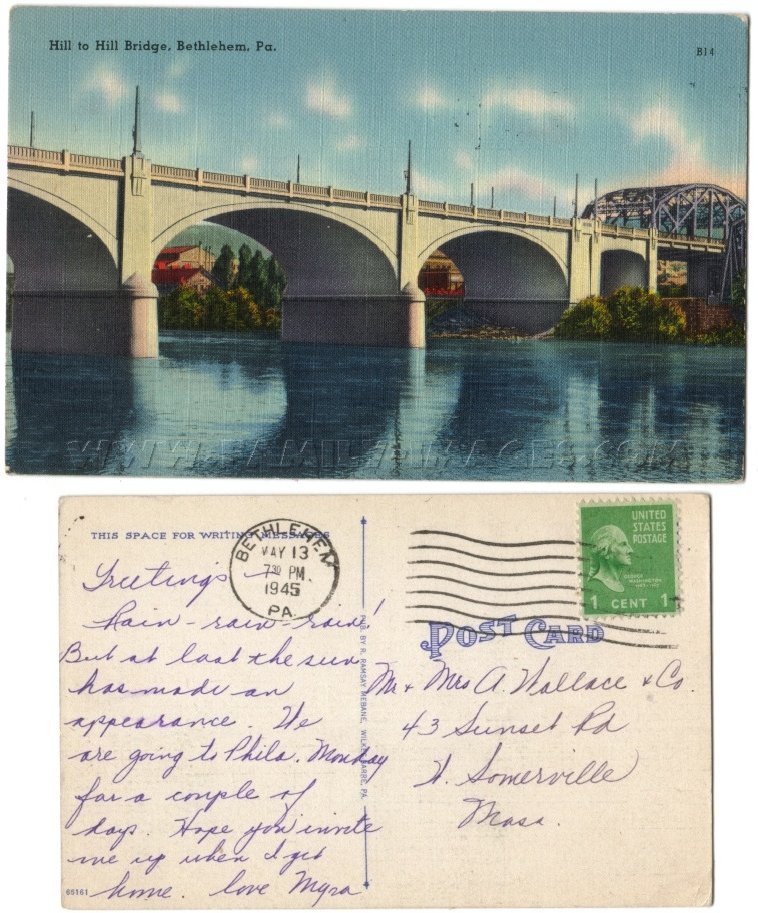 Hill to Hill Bridge, Bethlehem, Pa.
B14
WWW.FAMILY-IMAGES.COM
THIS SPACE FOR WRITING MESSAGES
BETHLEHEM
MAY 13
7 30 PM
1945
PA.
UNITED
STATES
POSTAGE
GEORGE
WASHINGTON
1 CENT 1
POST CARD
Greetings —
Rain - rain - rain!
But at last the sun
has made an
appearance. We
are going to Phila. Monday
for a couple of
days. Hope you invite
me up when I get
home. love Myra
PUB. BY R. RAMSAY MEBANE, WILKES-BARRE, PA.
Mr + Mrs A. Wallace + Co.
43 Sunset Rd
W. Somerville
Mass.
65161